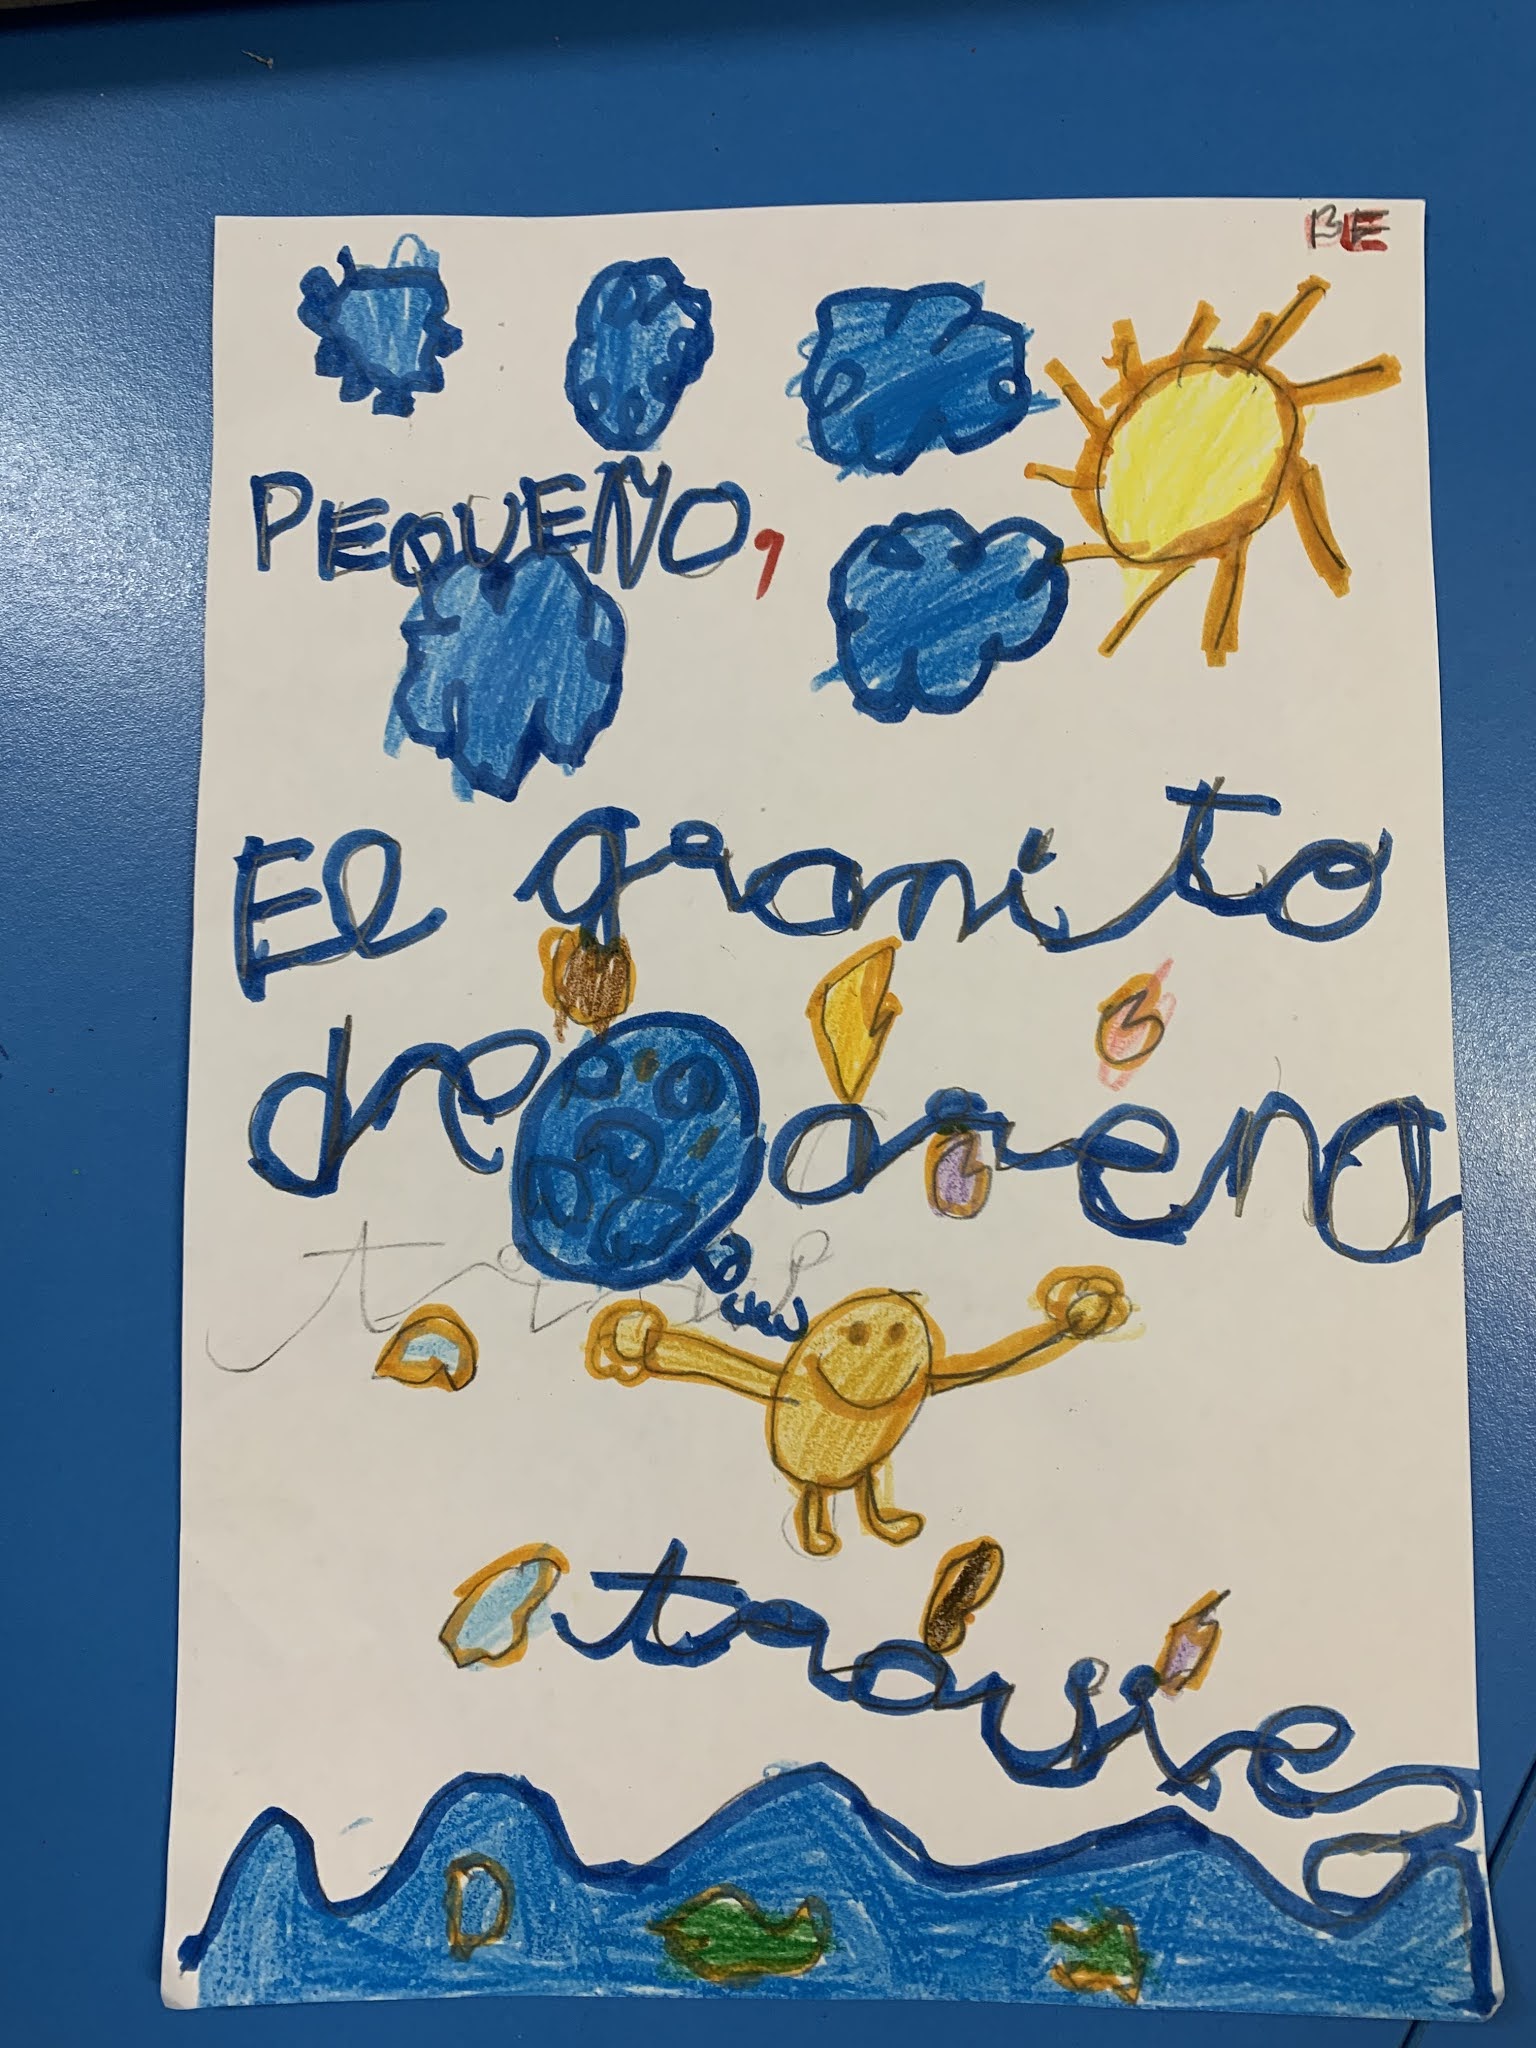 BE
PEQUEÑO,
El granito
de arena
travieso